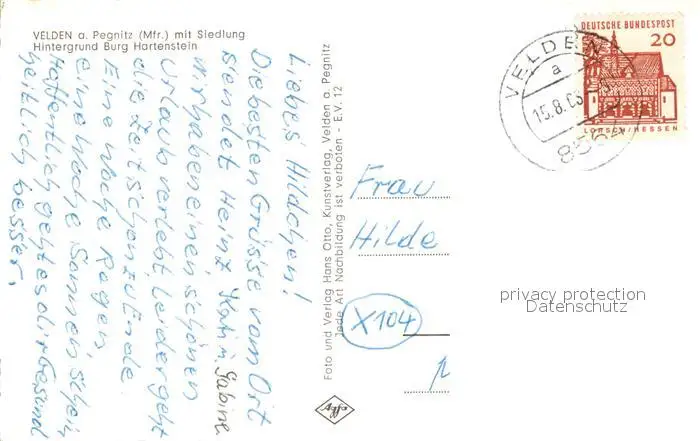 VELDEN a. Pegnitz (Mfr.) mit Siedlung
Hintergrund Burg Hartenstein
Liebes Hildchen!
Die besten Grüsse vom Ort
sendet Heinz Kati u. Sabine
wir haben einen schönen
Urlaub verlebt leider geht
die Zeit schon zu Ende.
Eine Woche Regen,
eine Woche Sonnenschein
Hoffentlich geht es dir Gesund
heitlich besser,
Foto und Verlag Hans Otto, Kunstverlag, Velden a. Pegnitz
Jede Art Nachbildung ist verboten - E.V. 12
Agfa
Frau
Hilde
X104
DEUTSCHE BUNDESPOST
20
LORSCH/HESSEN
VELDEN
a
15.8.
8564
privacy protection
Datenschutz